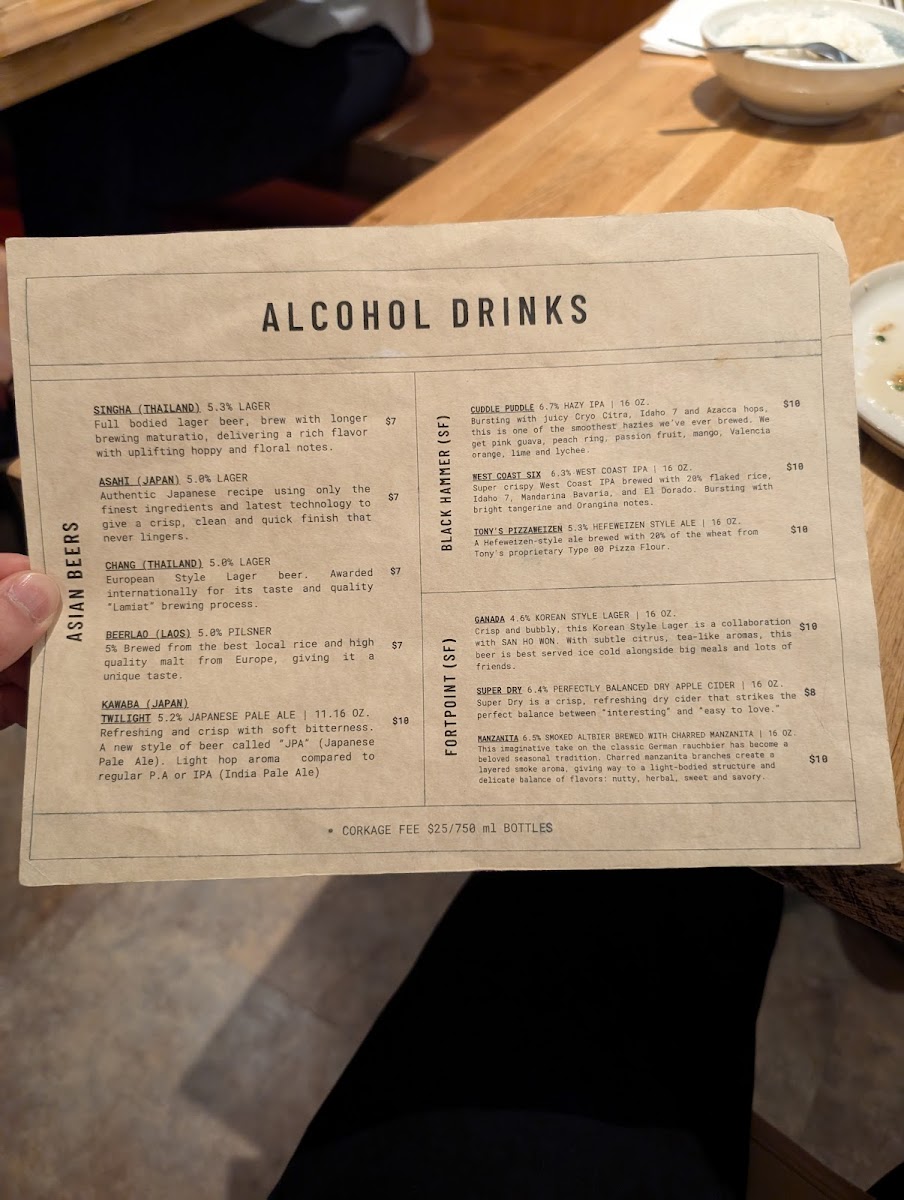 ALCOHOL DRINKS
ASIAN BEERS
SINGHA (THAILAND) 5.3% LAGER
Full bodied lager beer, brew with longer
brewing maturatio, delivering a rich flavor
with uplifting hoppy and floral notes.
$7
ASAHI (JAPAN) 5.0% LAGER
Authentic Japanese recipe using only the
finest ingredients and latest technology to
give a crisp, clean and quick finish that
never lingers.
$7
CHANG (THAILAND) 5.0% LAGER
European Style Lager beer. Awarded
internationally for its taste and quality
"Lamiat" brewing process.
$7
BEERLAO (LAOS) 5.0% PILSNER
5% Brewed from the best local rice and high
quality malt from Europe, giving it a
unique taste.
$7
KAWABA (JAPAN)
TWILIGHT 5.2% JAPANESE PALE ALE | 11.16 OZ.
Refreshing and crisp with soft bitterness.
A new style of beer called "JPA" (Japanese
Pale Ale). Light hop aroma compared to
regular P.A or IPA (India Pale Ale)
$10
BLACK HAMMER (SF)
CUDDLE PUDDLE 6.7% HAZY IPA | 16 OZ.
Bursting with juicy Cryo Citra, Idaho 7 and Azacca hops,
this is one of the smoothest hazies we've ever brewed. We
get pink guava, peach ring, passion fruit, mango, Valencia
orange, lime and lychee.
$10
WEST COAST SIX 6.3% WEST COAST IPA | 16 OZ.
Super crispy West Coast IPA brewed with 20% flaked rice,
Idaho 7, Mandarina Bavaria, and El Dorado. Bursting with
bright tangerine and Orangina notes.
$10
TONY'S PIZZAWEIZEN 5.3% HEFEWEIZEN STYLE ALE | 16 OZ.
A Hefeweizen-style ale brewed with 20% of the wheat from
Tony's proprietary Type 00 Pizza Flour.
$10
FORTPOINT (SF)
GANADA 4.6% KOREAN STYLE LAGER | 16 OZ.
Crisp and bubbly, this Korean Style Lager is a collaboration
with SAN HO WON. With subtle citrus, tea-like aromas, this
beer is best served ice cold alongside big meals and lots of
friends.
$10
SUPER DRY 6.4% PERFECTLY BALANCED DRY APPLE CIDER | 16 OZ.
Super Dry is a crisp, refreshing dry cider that strikes the
perfect balance between "interesting" and "easy to love."
$8
MANZANITA 6.5% SMOKED ALTBIER BREWED WITH CHARRED MANZANITA | 16 OZ.
This imaginative take on the classic German rauchbier has become a
beloved seasonal tradition. Charred manzanita branches create a
layered smoke aroma, giving way to a light-bodied structure and
delicate balance of flavors: nutty, herbal, sweet and savory.
$10
• CORKAGE FEE $25/750 ml BOTTLES